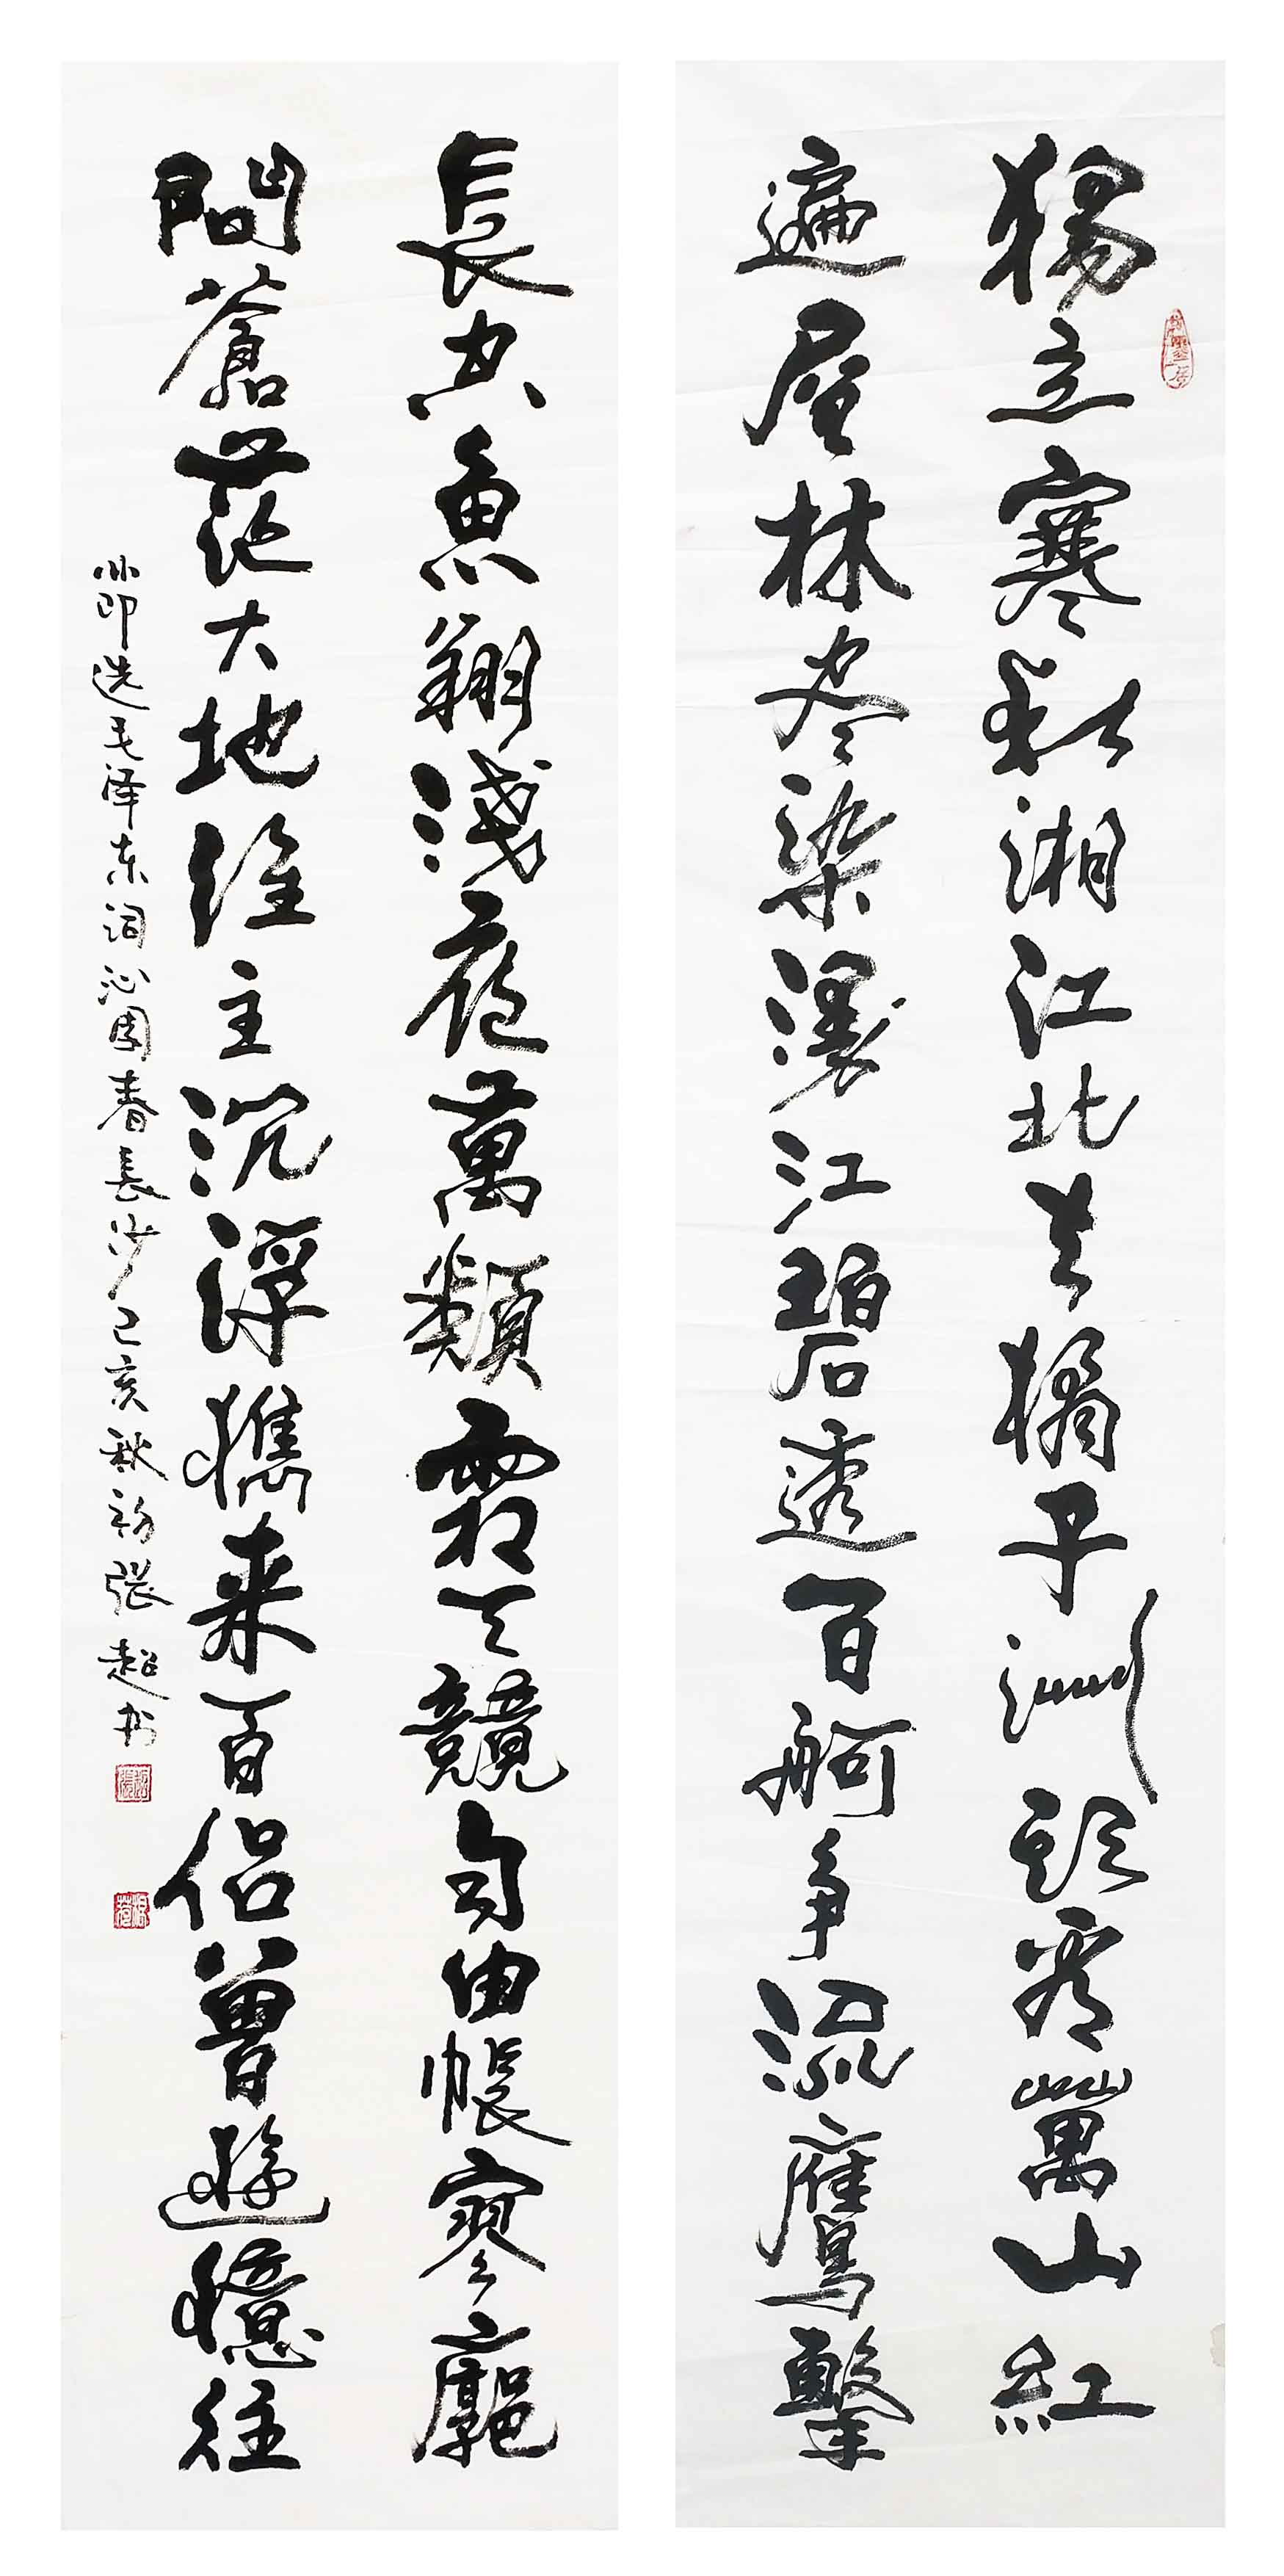 獨立寒秋湘江北去橘子洲頭看萬山紅
遍層林尽染漫江碧透百舸争流鷹擊
長空魚翔淺底萬類霜天競自由悵寥廓
問蒼茫大地誰主沉浮攜来百侣曾遊憶往
節选毛泽东词沁园春長沙己亥秋初張超书